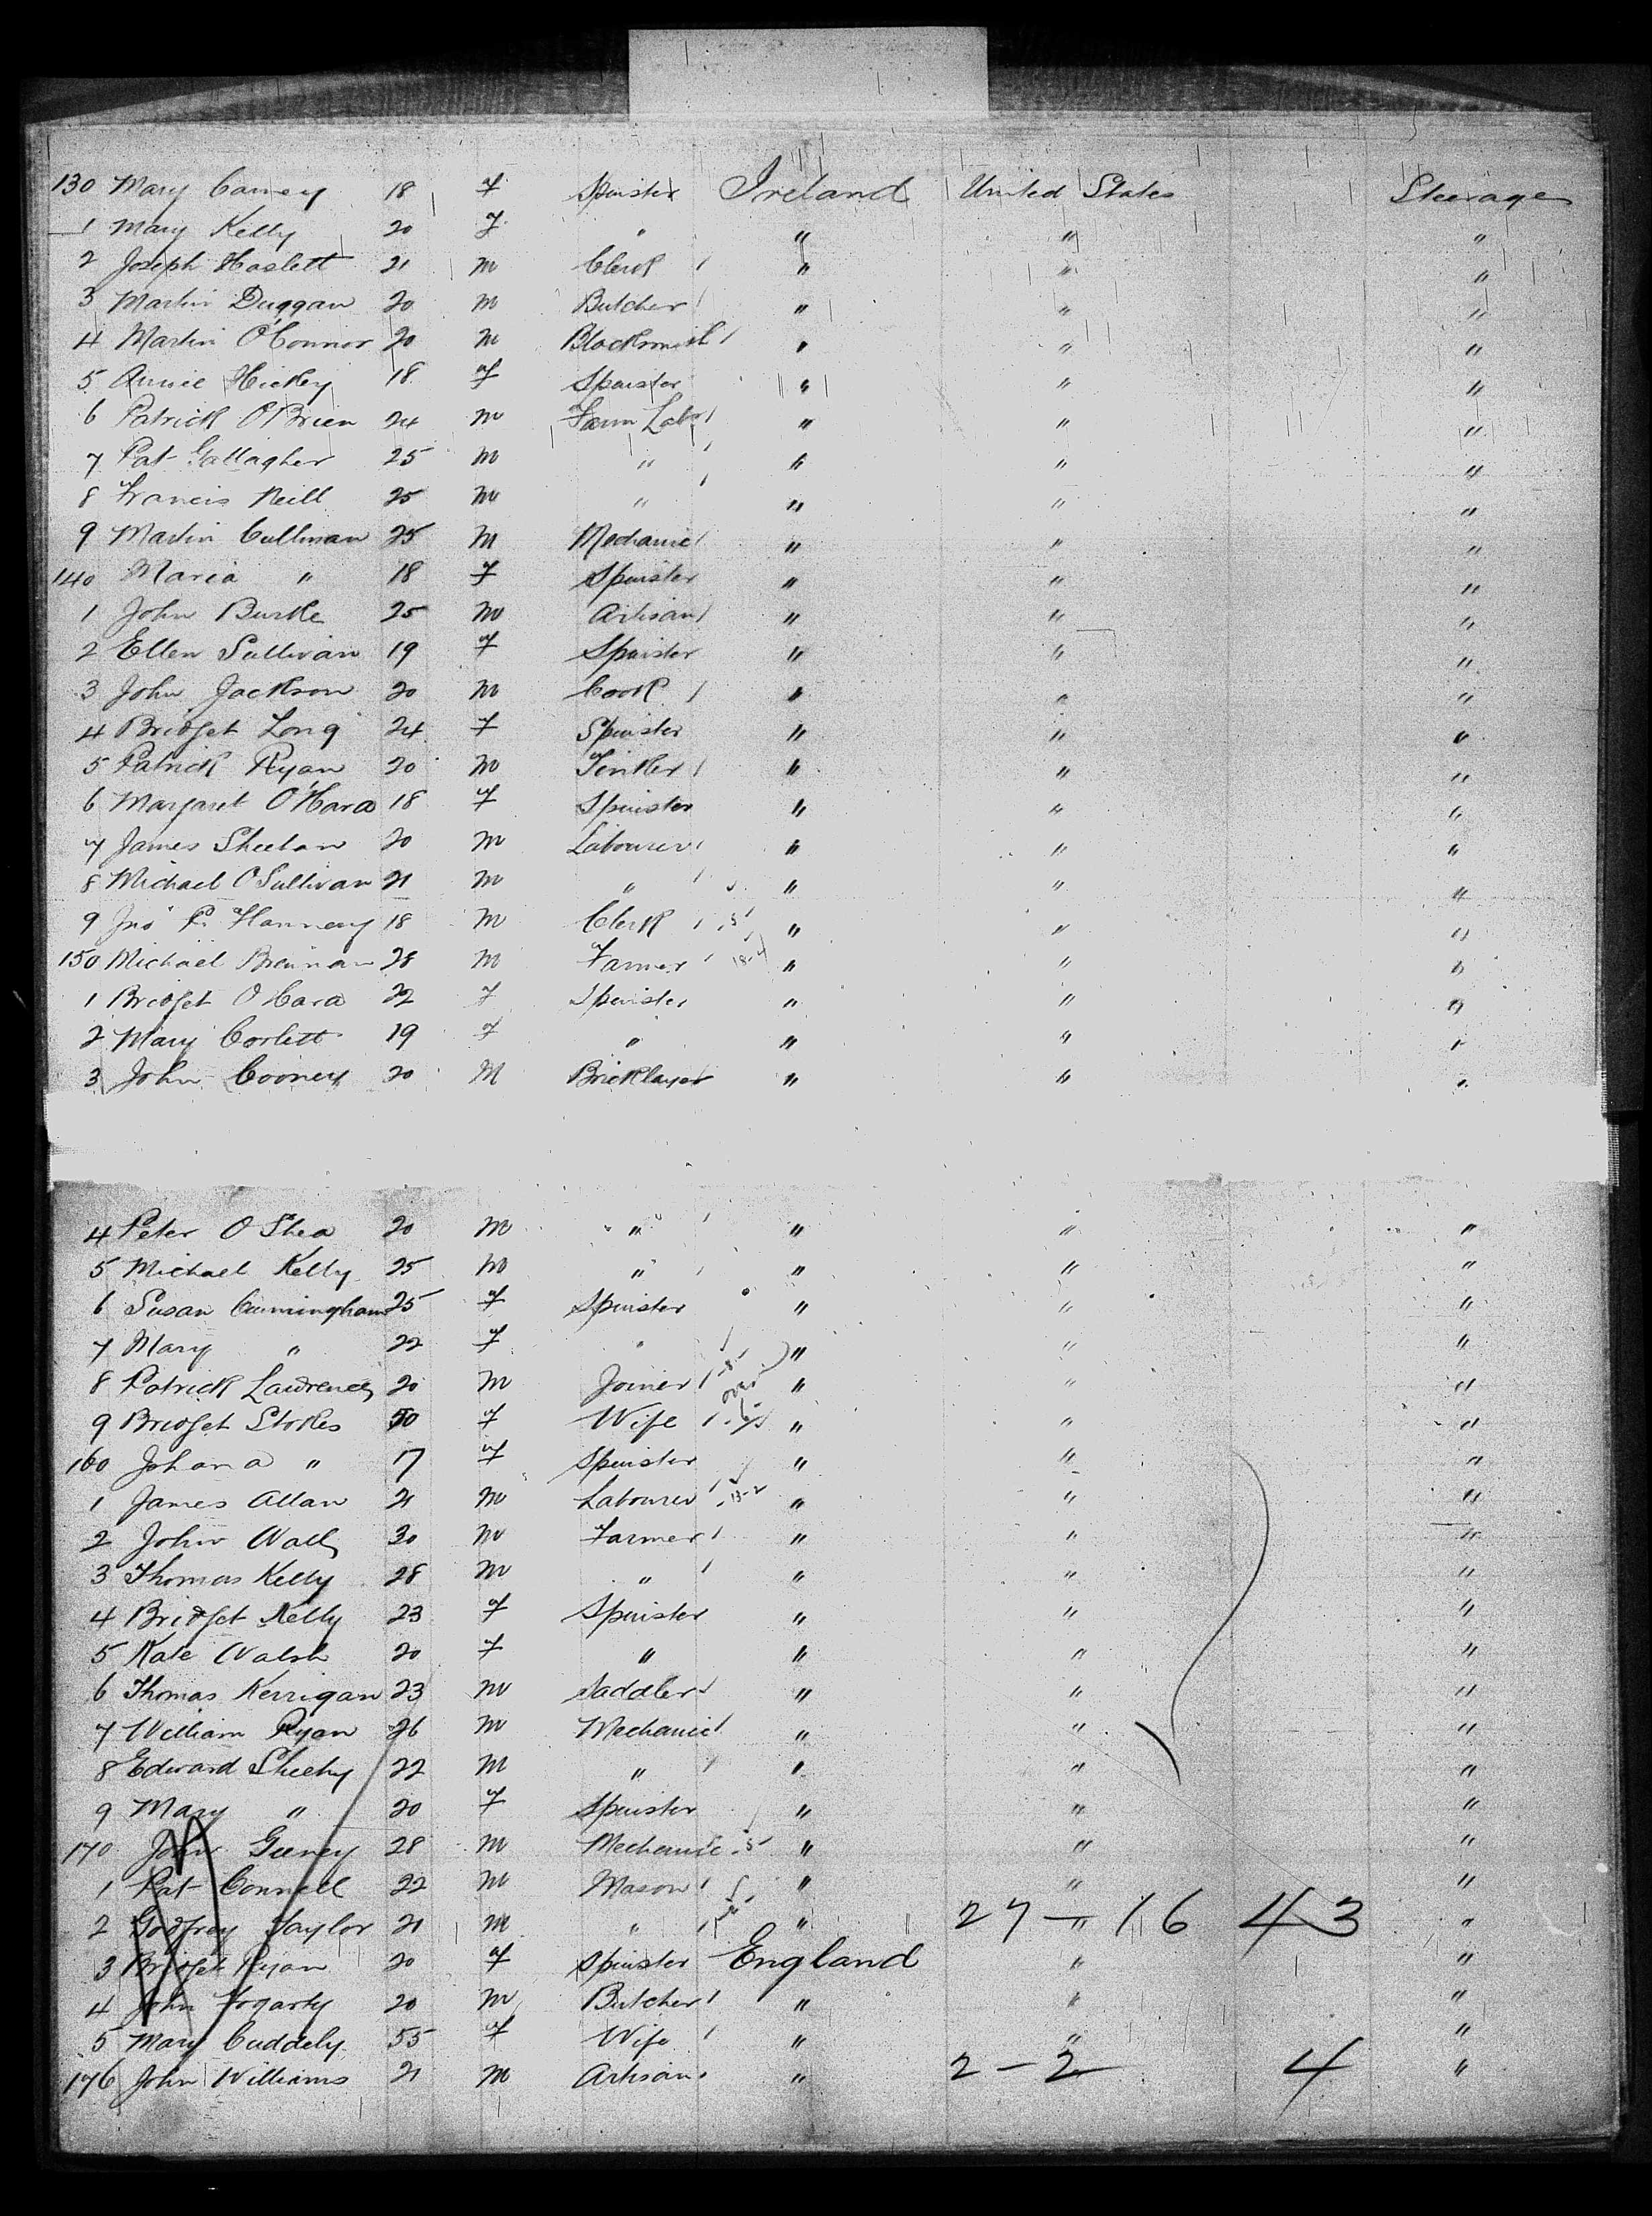 130 Mary Carney 18 f Spinster Ireland United States Steerage
1 Mary Kelly 20 f " " " "
2 Joseph Haslett 21 m Clerk " " "
3 Martin Duggan 20 m Butcher " " "
4 Martin O'Connor 20 m Blacksmith " " "
5 Annie Hickey 18 f Spinster " " "
6 Patrick O'Brien 24 m Farm Labr " " "
7 Pat Gallagher 25 m " " " "
8 Francis Neill 25 m " " " "
9 Martin Cullinan 25 m Mechanic " " "
140 Maria " 18 f Spinster " " "
1 John Burke 25 m Artisan " " "
2 Ellen Sullivan 19 f Spinster " " "
3 John Jackson 20 m Cook " " "
4 Bridget Long 24 f Spinster " " "
5 Patrick Ryan 20 m Tinker " " "
6 Margaret O'Hara 18 f Spinster " " "
7 James Sheehan 20 m Labourer " " "
8 Michael O'Sullivan 21 m " " " "
9 Jno P. Hannery 18 m Clerk " " "
150 Michael Brennan 28 m Farmer " " "
1 Bridget O'Hara 22 f Spinster " " "
2 Mary Corlett 19 f " " " "
3 John Cooney 20 m Bricklayer " " "
4 Peter O'Shea 20 m " " " "
5 Michael Kelly 25 m " " " "
6 Susan Cunningham 25 f Spinster " " "
7 Mary " 22 f " " " "
8 Patrick Lawrence 20 m Joiner " " "
9 Bridget Stokes 50 f Wife " " "
160 Johana " 17 f Spinster " " "
1 James Allan 21 m Labourer 13-2 " " "
2 John Wall 30 m Farmer " " "
3 Thomas Kelly 28 m " " " "
4 Bridget Kelly 23 f Spinster " " "
5 Kate Walsh 20 f " " " "
6 Thomas Kerrigan 23 m Saddler " " "
7 William Ryan 26 m Mechanic " " "
8 Edward Sheehy 22 m " " " "
9 Mary " 20 f Spinster " " "
170 John Geeney 28 m Mechanic " " "
1 Pat Connell 22 m Mason " " "
2 Godfrey Taylor 21 m " " 27 - " 16 43 "
3 Bridget Ryan 20 f Spinster England " "
4 John Fogarty 20 m Butcher " " "
5 Mary Cuddely 55 f Wife " " "
176 John Williams 21 m Artisan " 2 - 2 4 "